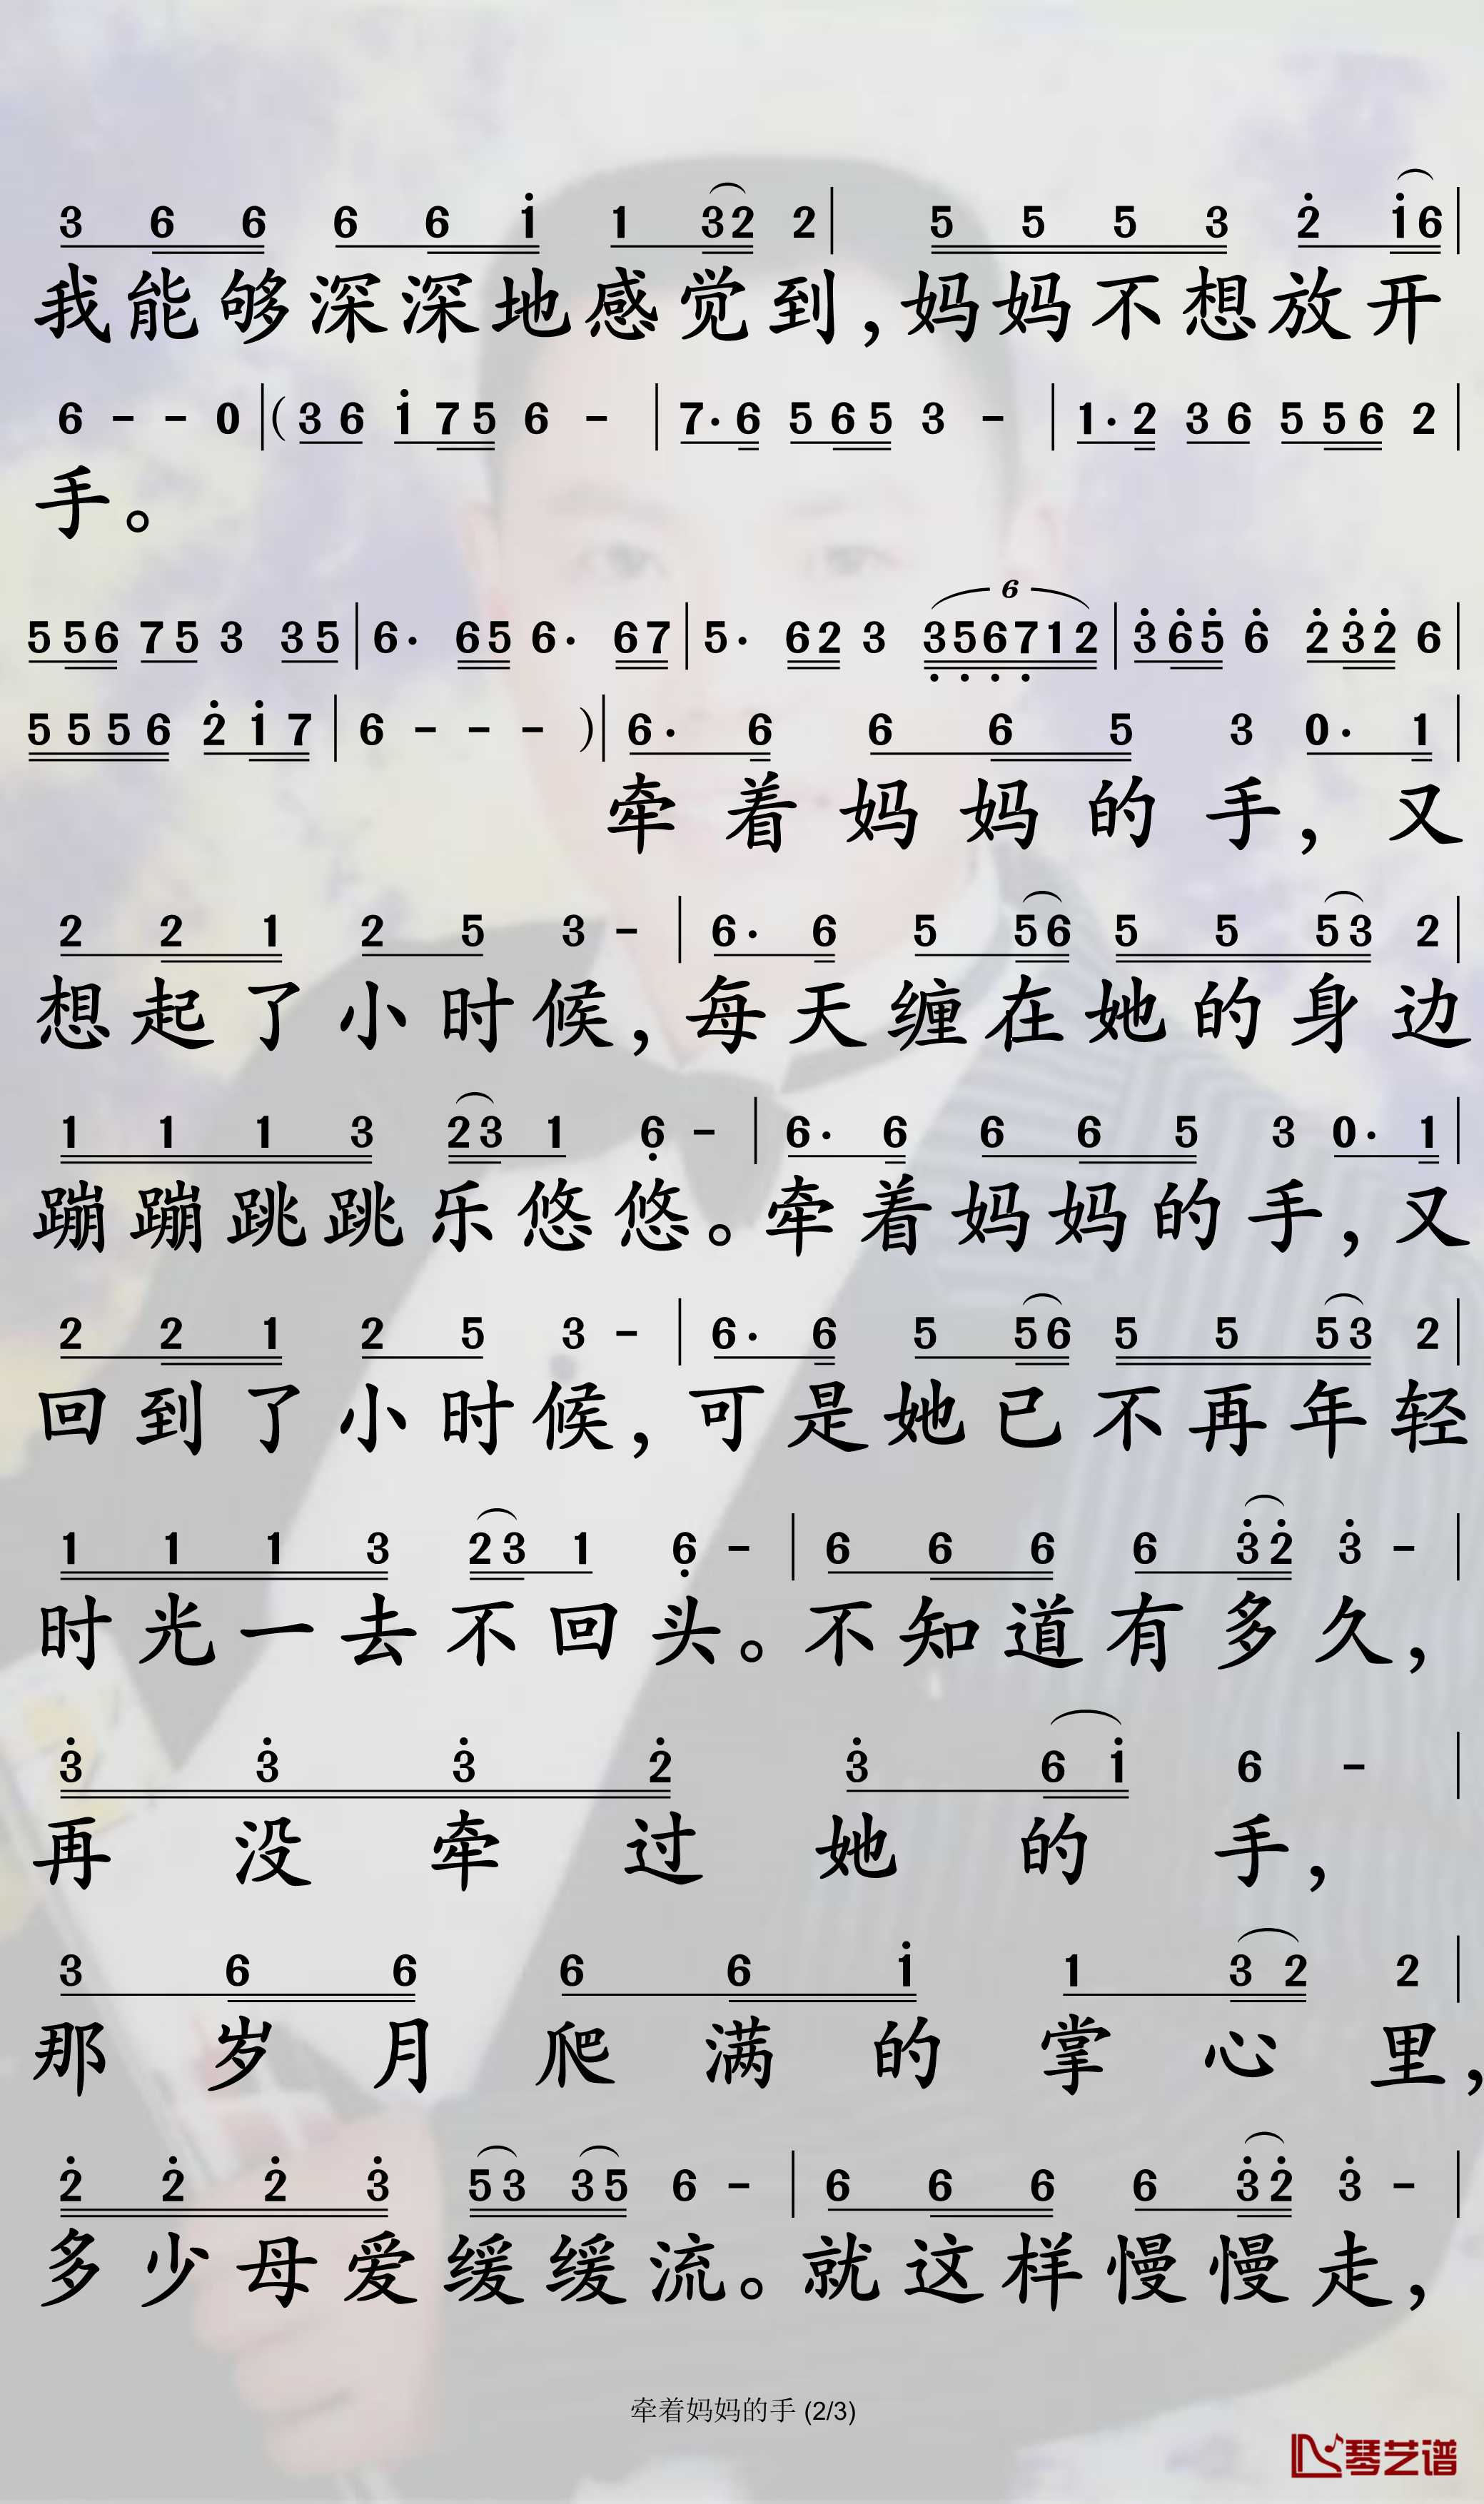 3 6 6 6 6 i 1 32 2 | 5 5 5 3 2̇ i6 |
我能够深深地感觉到，妈妈不想放开
6 - - 0 |( 3 6 i 7 5 6 - | 7· 6 5 6 5 3 - | 1· 2 3 6 5 5 6 2 |
手。
5 5 6 7 5 3 3 5 | 6· 6 5 6· 6 7 | 5· 6 2 3 6 3̣ 5̣ 6̣ 7̣ 1 2 | 3̇ 6̇ 5̇ 6̇ 2̇ 3̇ 2̇ 6 |
5 5 5 6 2̇ i 7 | 6 - - - )| 6· 6 6 6 5 3 0· 1 |
牵着妈妈的手，又
2 2 1 2 5 3 - | 6· 6 5 5 6 5 5 5 3 2 |
想起了小时候，每天缠在她的身边
1 1 1 3 2 3 1 6̣ - | 6· 6 6 6 5 3 0· 1 |
蹦蹦跳跳乐悠悠。牵着妈妈的手，又
2 2 1 2 5 3 - | 6· 6 5 5 6 5 5 5 3 2 |
回到了小时候，可是她已不再年轻
1 1 1 3 2 3 1 6̣ - | 6 6 6 6 3̇ 2̇ 3̇ - |
时光一去不回头。不知道有多久，
3̇ 3̇ 3̇ 2̇ 3̇ 6 i 6 - |
再没牵过她的手，
3 6 6 6 6 i 1 3 2 2 |
那岁月爬满的掌心里，
2̇ 2̇ 2̇ 3̇ 5 3 3 5 6 - | 6 6 6 6 3̇ 2̇ 3̇ - |
多少母爱缓缓流。就这样慢慢走，
牵着妈妈的手 (2/3)
琴艺谱